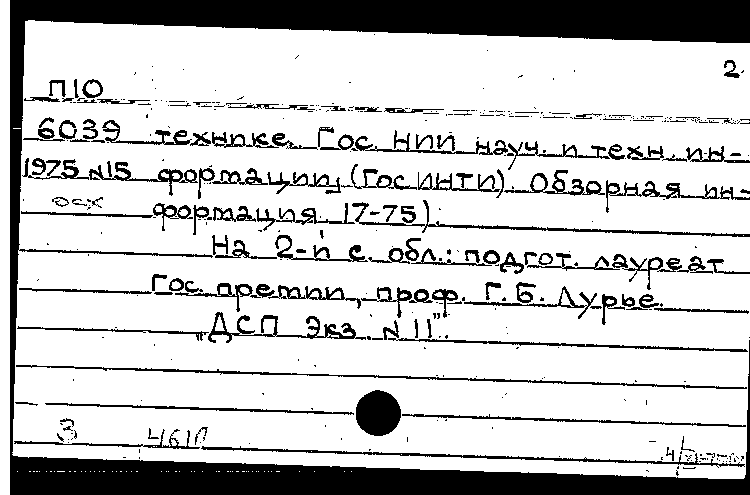 2
П10
6039 технике. Гос. НИИ науч. и техн. ин-
1975 №15 формации, (ГосИНТИ). Обзорная ин-
осх формация. 17-75).
На 2-й с. обл.: подгот. лауреат
Гос. премии, проф. Г.Б. Лурье.
„ДСП Экз. №11".
3 461Л